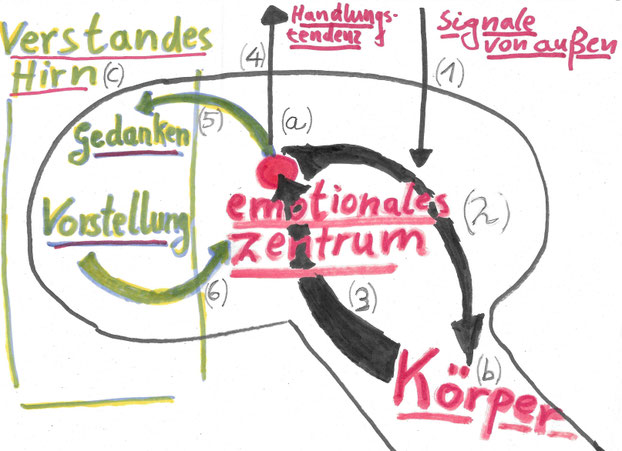 Verstandes
Hirn (c)
Handlungs-
tendenz
Signale
von außen
(4)
(1)
(5)
(a)
Gedanken
Vorstellung
emotionales
Zentrum
(2)
(6)
(3)
Körper
(b)